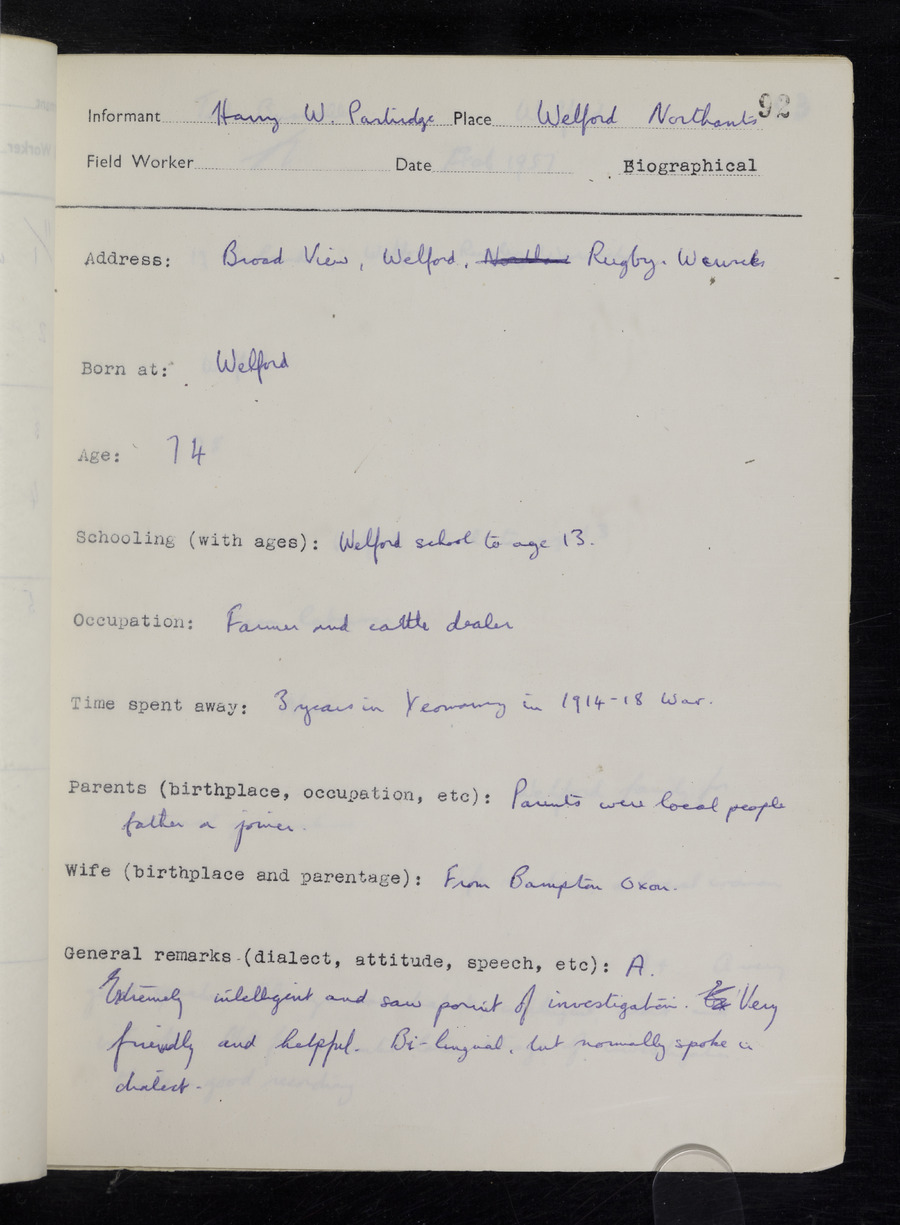 92
Informant Harry W. Partridge Place Welford Northants
Field Worker Date Biographical
Address: Broad View, Welford, Rugby. Warwicks
Born at: Welford
Age: 74
Schooling (with ages): Welford school to age 13.
Occupation: Farmer and cattle dealer
Time spent away: 3 years in Yeomanry in 1914-18 War.
Parents (birthplace, occupation, etc): Parents were local people
father a joiner.
Wife (birthplace and parentage): From Bampton Oxon.
General remarks (dialect, attitude, speech, etc): A.
Extremely intelligent and saw point of investigation. Very
friendly and helpful. Bi-lingual, but normally spoke in
dialect.